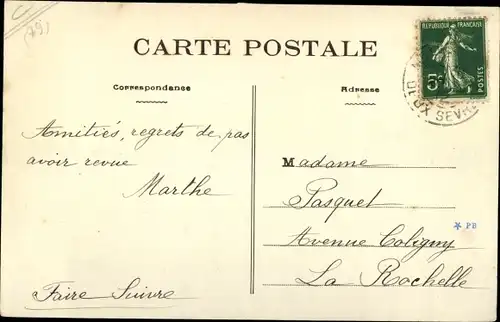 (79)
CARTE POSTALE
RÉPUBLIQUE FRANÇAISE
5c
POSTES
DEUX SEVRES
Correspondance
Adresse
Amitiés, regrets de pas
avoir revue
Marthe
Faire Suivre
Madame
Pasquet
Avenue Coligny
La Rochelle
PB